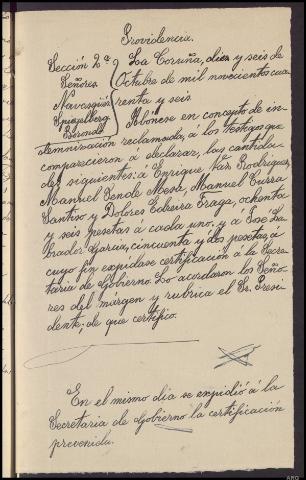 Providencia.
Sección 2ª La Coruña, diez y seis de
Señores Octubre de mil novecientos cua
Navasqüés renta y seis
Spiegelberg Abónese en concepto de in-
Gerondo
demnización reclamada, á los testigos que
comparecieron á declarar, las cantida-
des siguientes: á Enrique Vaz Rodriguez,
Manuel Penole Mesa, Manuel Curra
Santiso y Dolores Lobeira Fraga, ochenta
y seis pesetas á cada uno, y á José La-
brador García, cincuenta y dos pesetas, á
cuyo fin expídase certificación á la Secre-
taría de Gobierno. Lo acordaron los Seño-
res del márgen y rubrica el Sr. Presi
dente, de que certifico.
En el mismo dia se expidió á la
Secretaría de Gobierno la certificación
prevenida.